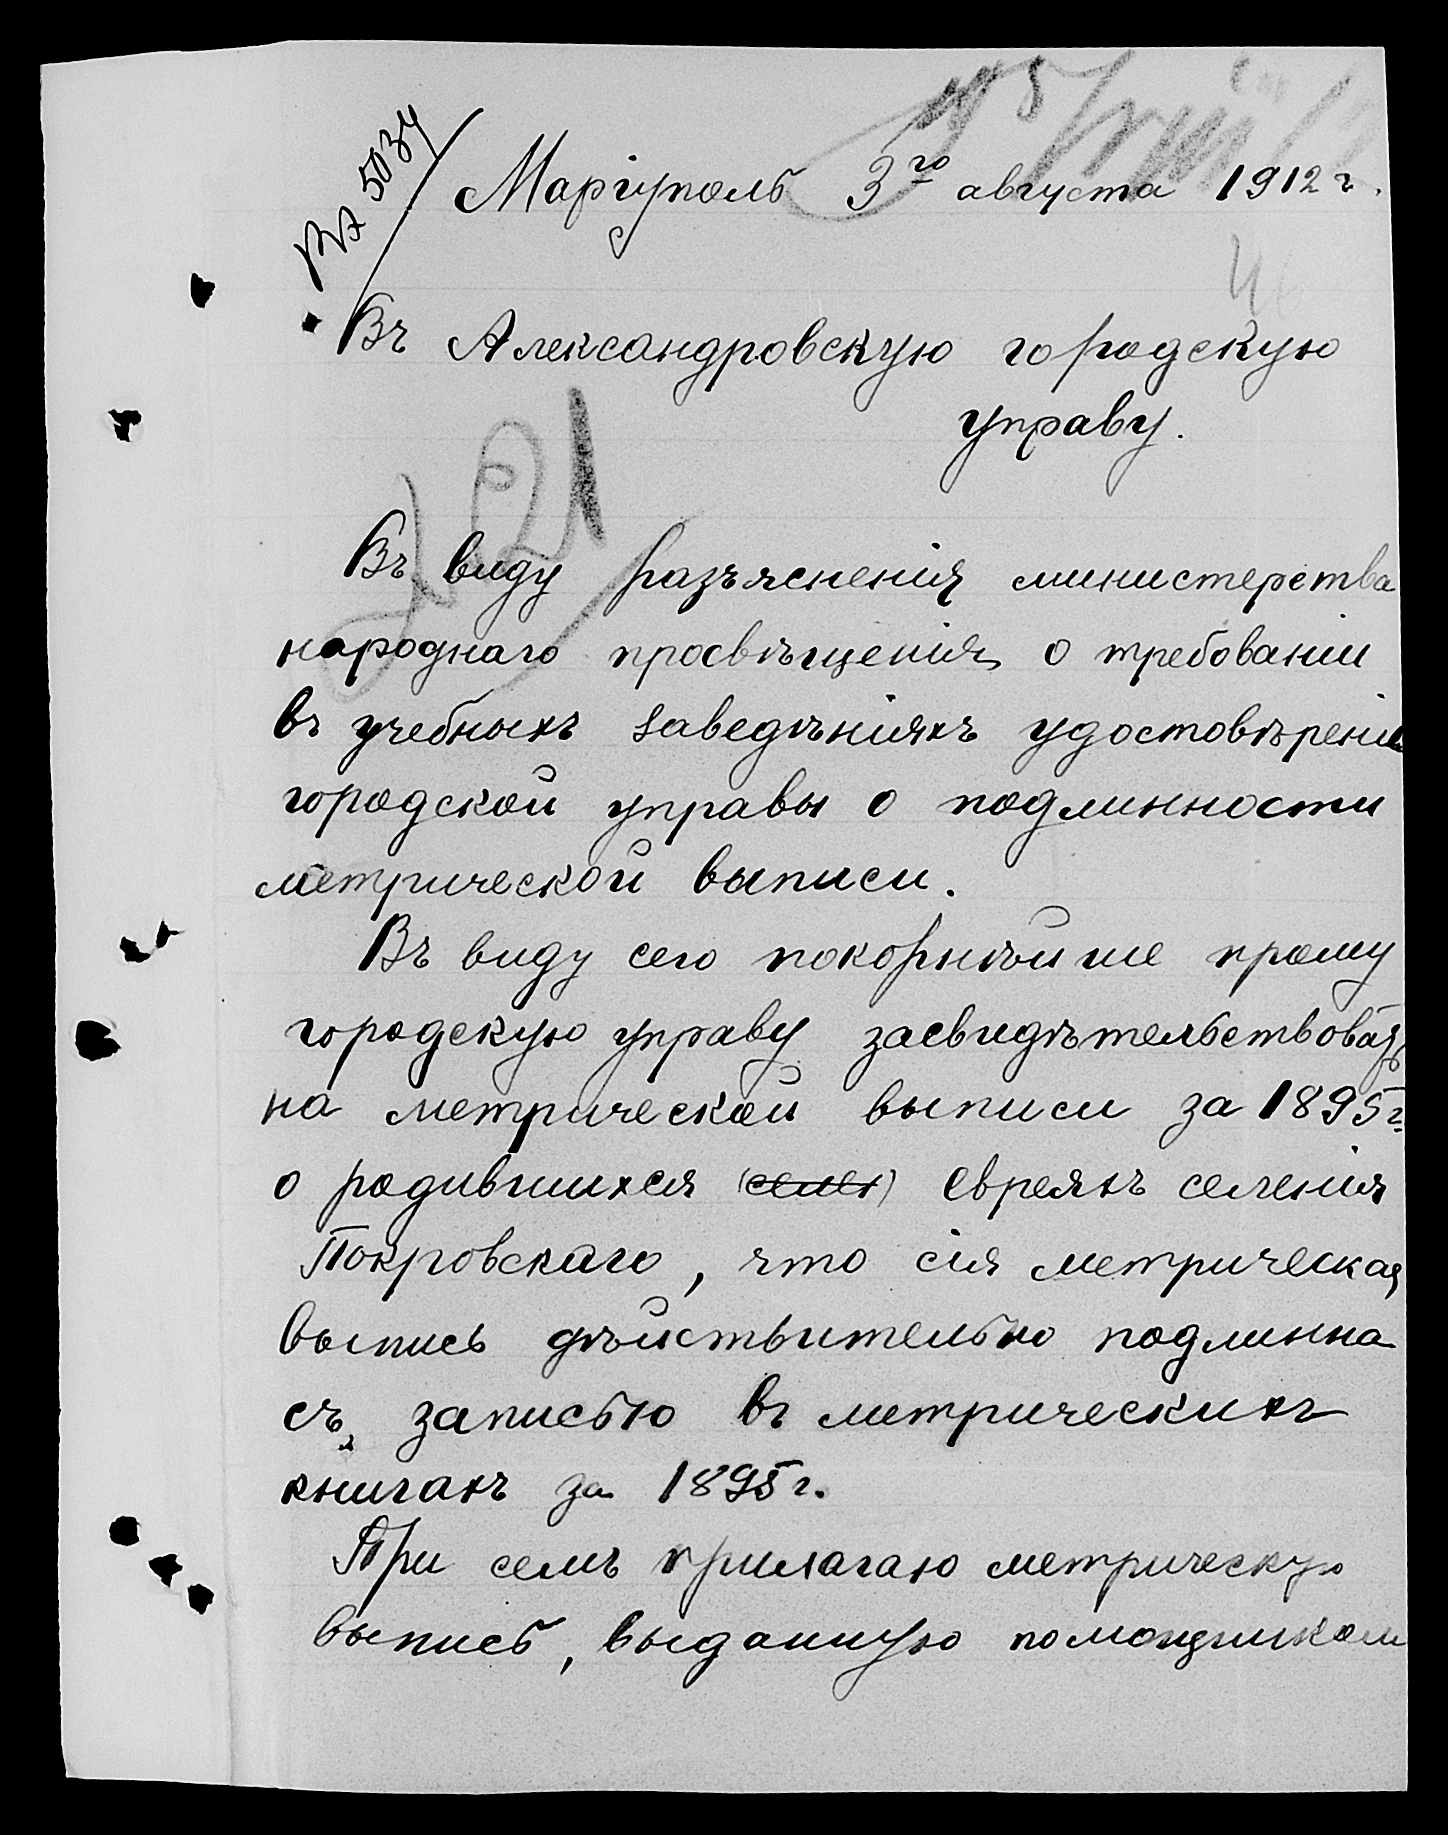 Вх 5034
Маріуполь 3го августа 1912 г.
Въ Александровскую городскую
управу.
Въ виду разъясненія министерства
народнаго просвѣщенія о требованіи
въ учебныхъ заведѣніяхъ удостовѣренія
городской управы о подлинности
метрической выписи.
Въ виду сего покорнѣйше прошу
городскую управу засвидѣтельствовать
на метрической выписи за 1895 г.
о родившихся (селен) евреяхъ селенія
Покровскаго, что сія метрическая
выпись дѣйствительно подлинна
съ записью въ метрическихъ
книгахъ за 1895 г.
При семъ прилагаю метрическую
выпись, выданную помощникомъ